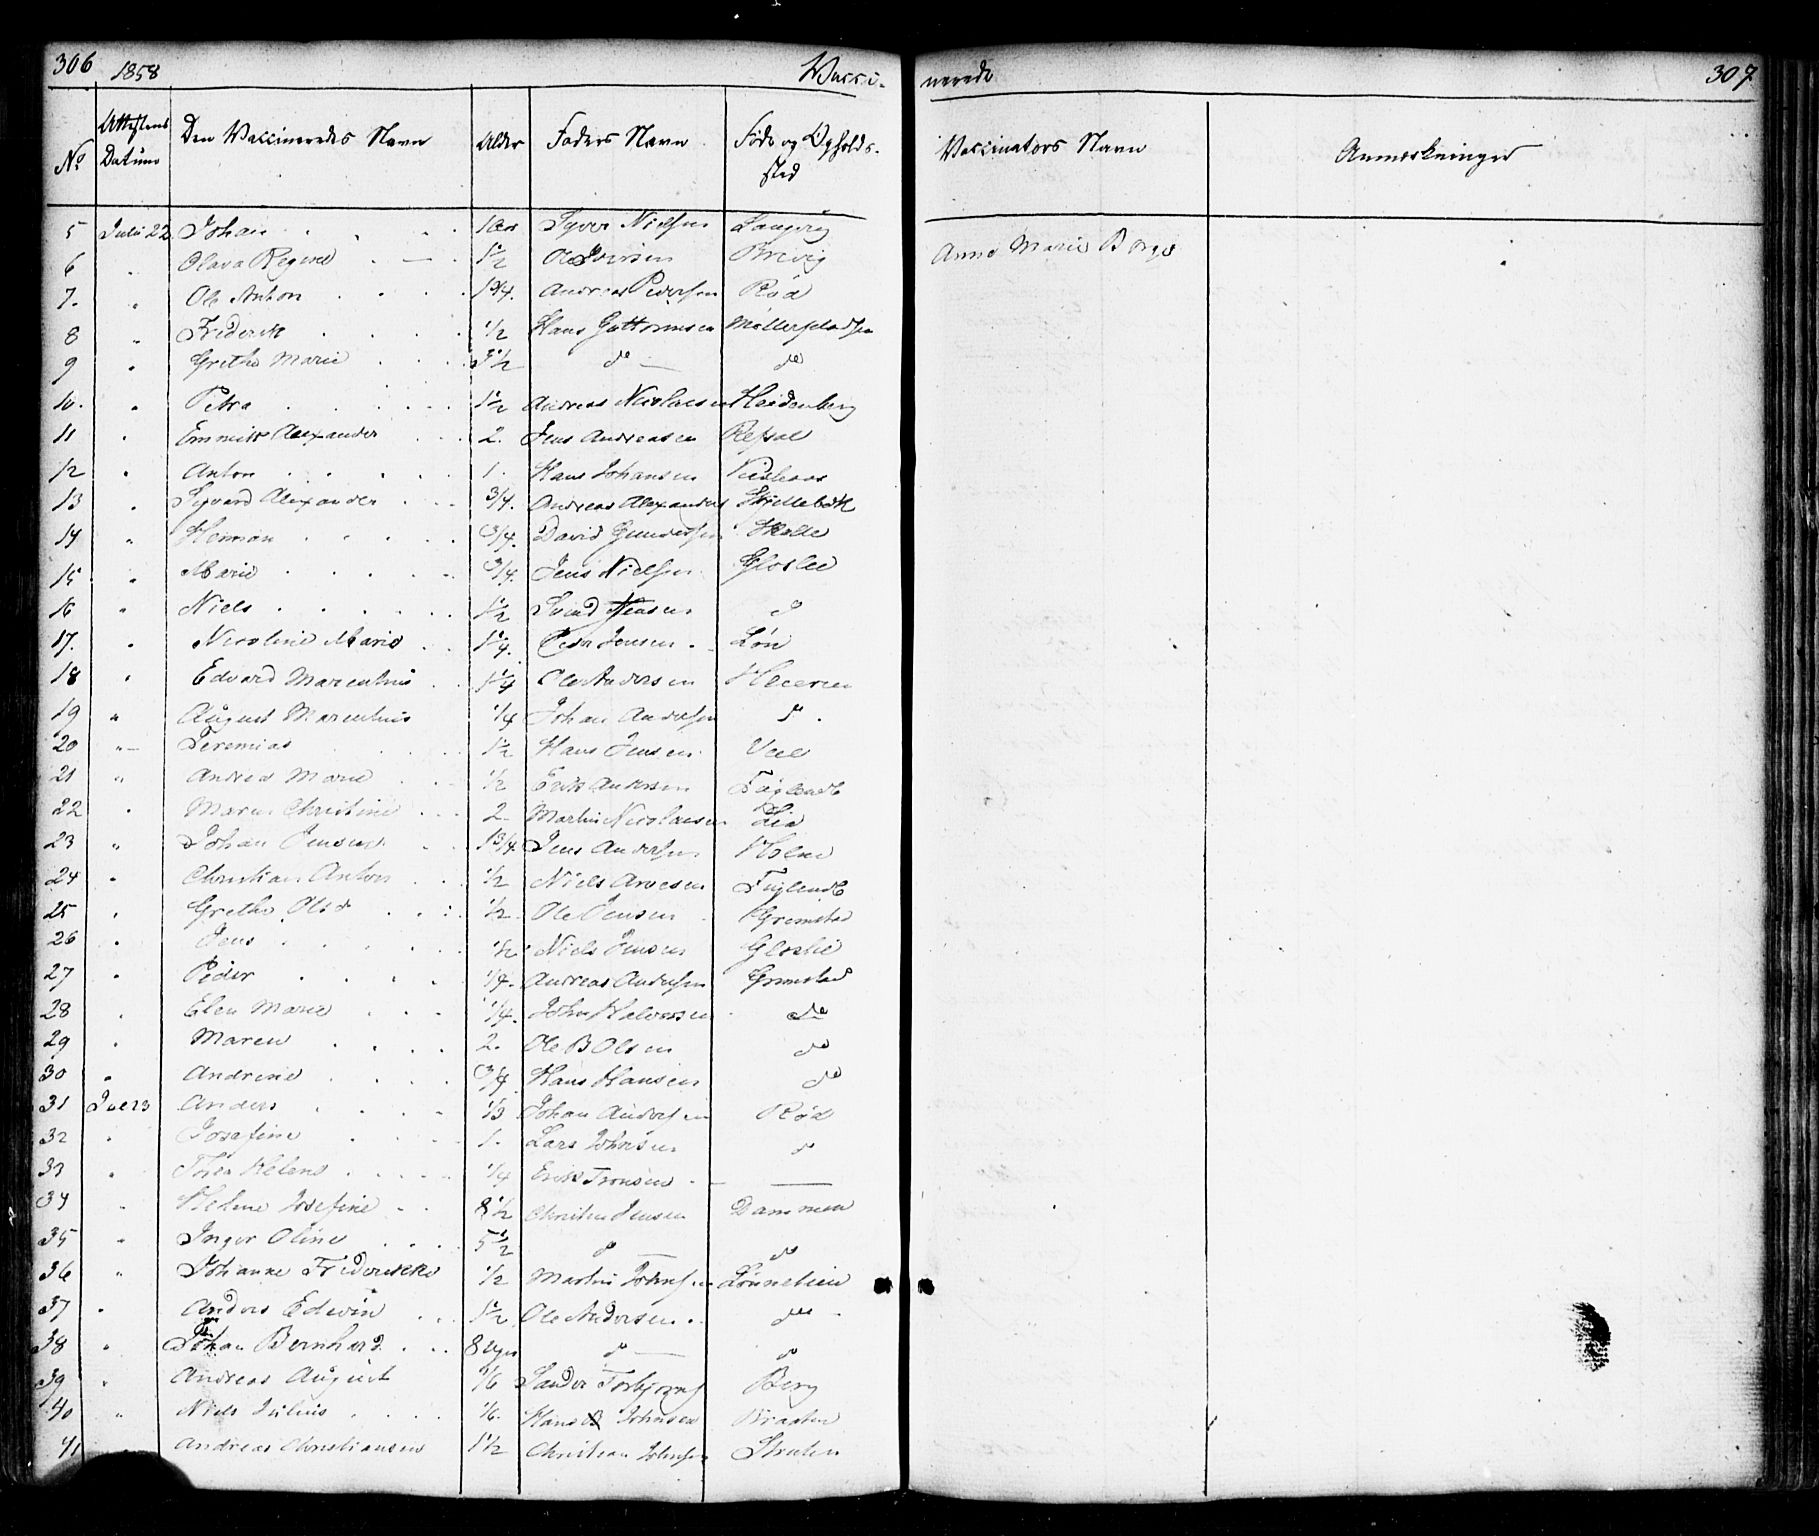 306 1858 Vacci-
nerede 307
No Attestens Datum Den Vaccineredes Navn Alder Faders Navn Føde og Opholds-sted Vaccinators Navn Anmerkninger
5 Juli 22 Johan 1 Syver Nielsen Langvig Anne Marie Borge
6 " Olava Regine 1 1/2 Ole Iversen Brevig
7. " Ole Anton 1 3/4. Andreas Pedersen Rød
8 " Frederik 1/2 Hans Guttormsen Møllerpladsen
9 " Grethe Marie 3 1/2 do do
10. " Petra 1 1/2 Andreas Nicolaisen Heidenberg
11 " Emmik Alexander 2. Jens Andreasen Refsal
12 " Anton 1. Hans Johansen
13 " Syvard Alexander 3/4. Andreas Alexanders Skillebek
14 " Herman 3/4. David Gundersen Molle
15 " Marie 3/4. Jens Nielsen Gloslie
16 " Niels 1 1/2 Svend Jensen do
17. " Nicoline Marie 1 1/4. Peder Jensen Løn
18 " Edvard Marenthius 1 1/4 Ole Andersen
19 " August Marenthius 1/4 Johan Andersen do
20 " Jeremias 1 1/2 Hans Jensen Veel
21 " Andrea Marie 1/2 Erik Andersen Fuglendb
22 " Maren Christine 2. Martin Nicolaisen Lia
23 " Johan Jensen 1 3/4. Jens Andersen Holme
24 " Christian Anton 1/2 Niels Arvesen Fuglendb
25 " Grethe Olse 1/2. Ole Jensen Grimstad
26 " Jens 1/2 Niels Jensen Gloslie
27 " Peder 1/4. Andreas Andersen Grimstad
28 " Elen Marie 1/4. John Halvorsen do
29 " Maren 2. Ole B Olsen do
30 " Andrine 3/4 Hans Hansen do
31 Juli 23 Anders 1/3 Johan Andersen Rød
32 " Josefine 1. Lars Johnsen do
33 " Thea Helene 1/4 Erik Tronsen —
34 " Helene Josefine 8 1/2 Christen Jensen Dammen
35 " Inger Oline 5 1/2 do do
36 " Johanne Fredrikke 1/2 Martin Johnsen Lønnebien
37 " Anders Edwin 1 1/2 Ole Andersen do
38 " Johan Bernhard 8 Uger do do
39 " Andreas August 1/6 Sander Torbjørns Berg
40 " Niels Julius 1/6. Hans B Johnsen Braaten
41 Andreas Christiansen 1 1/2 Christian Johnsen Struten